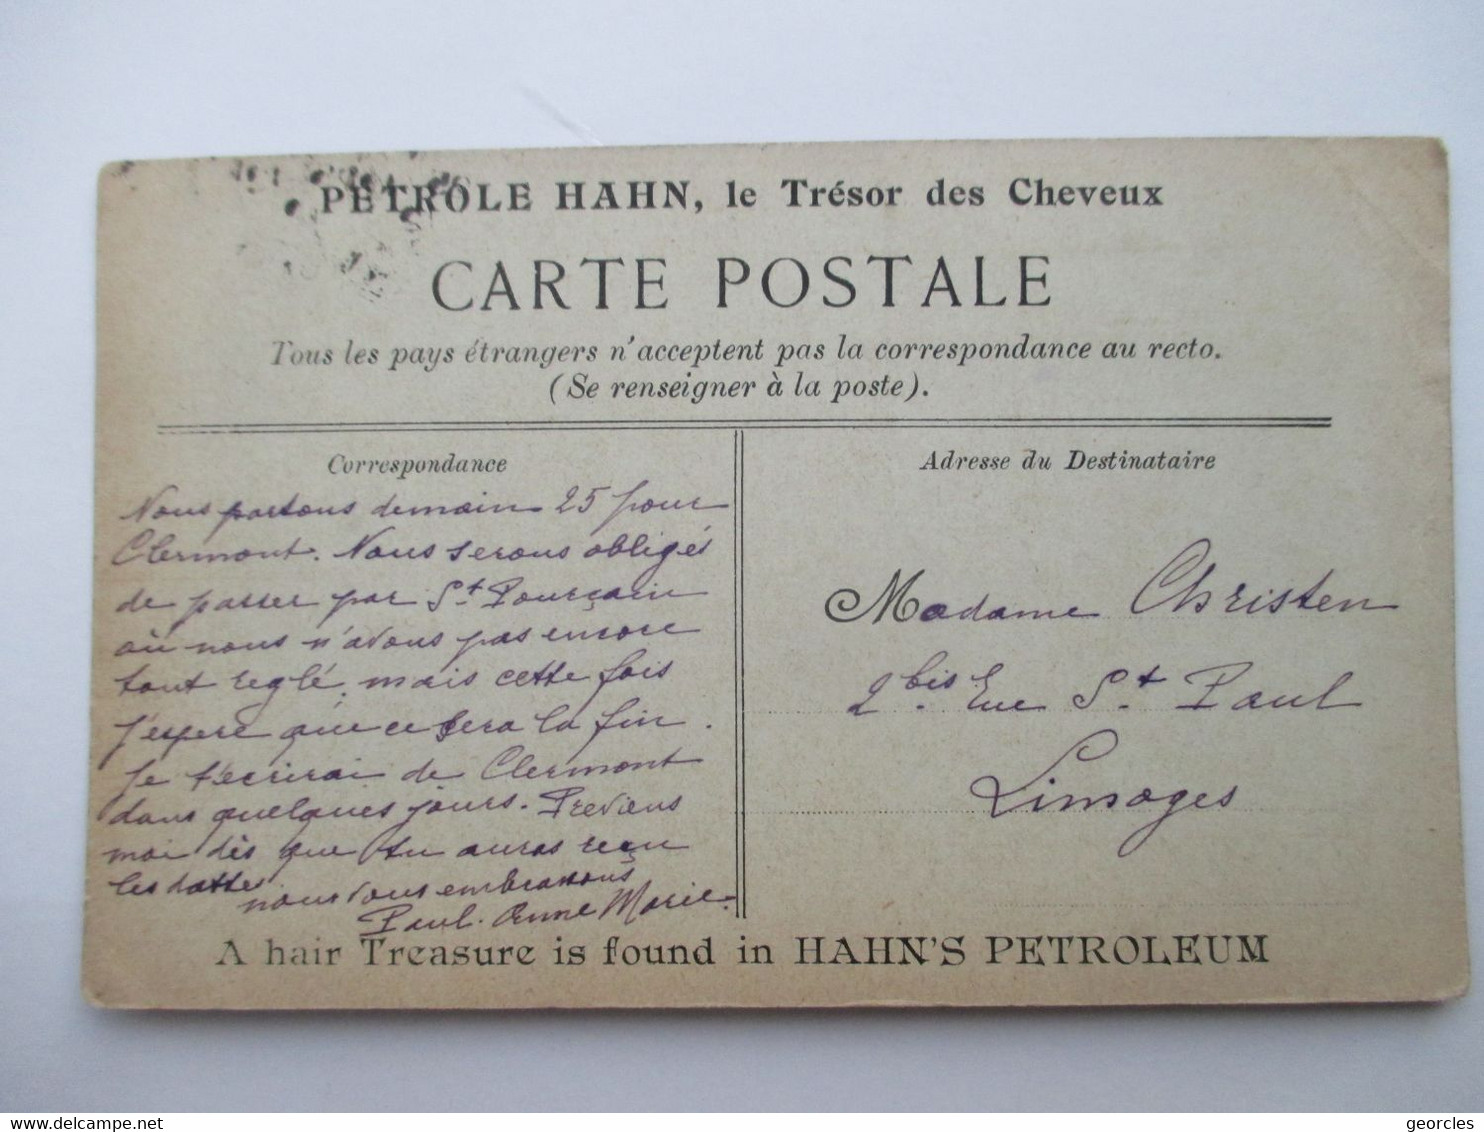 PETROLE HAHN, le Trésor des Cheveux
CARTE POSTALE
Tous les pays étrangers n'acceptent pas la correspondance au recto.
(Se renseigner à la poste).
Correspondance
Nous partons demain 25 pour
Clermont. Nous serons obligés
de passer par St Pourçain
où nous n'avons pas encore
tout reglé, mais cette fois
j'espere que ce sera la fin.
Je t'écrirai de Clermont
dans quelques jours. Previens
moi dès que tu auras reçu
les dattes
nous vous embrassons
Paul. Anne Marie.
Adresse du Destinataire
Madame Christen
2 bis rue St Paul
Limoges
A hair Treasure is found in HAHN'S PETROLEUM
www.delcampe.net
georcles